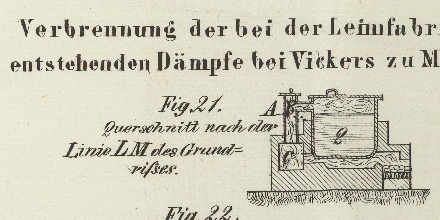 Verbrennung der bei der Leimfabr
entstehenden Dämpfe bei Vickers zu M
Fig. 21.
Querschnitt nach der
Linie LM des Grund=
rißes.
A
Q
Fig. 22.